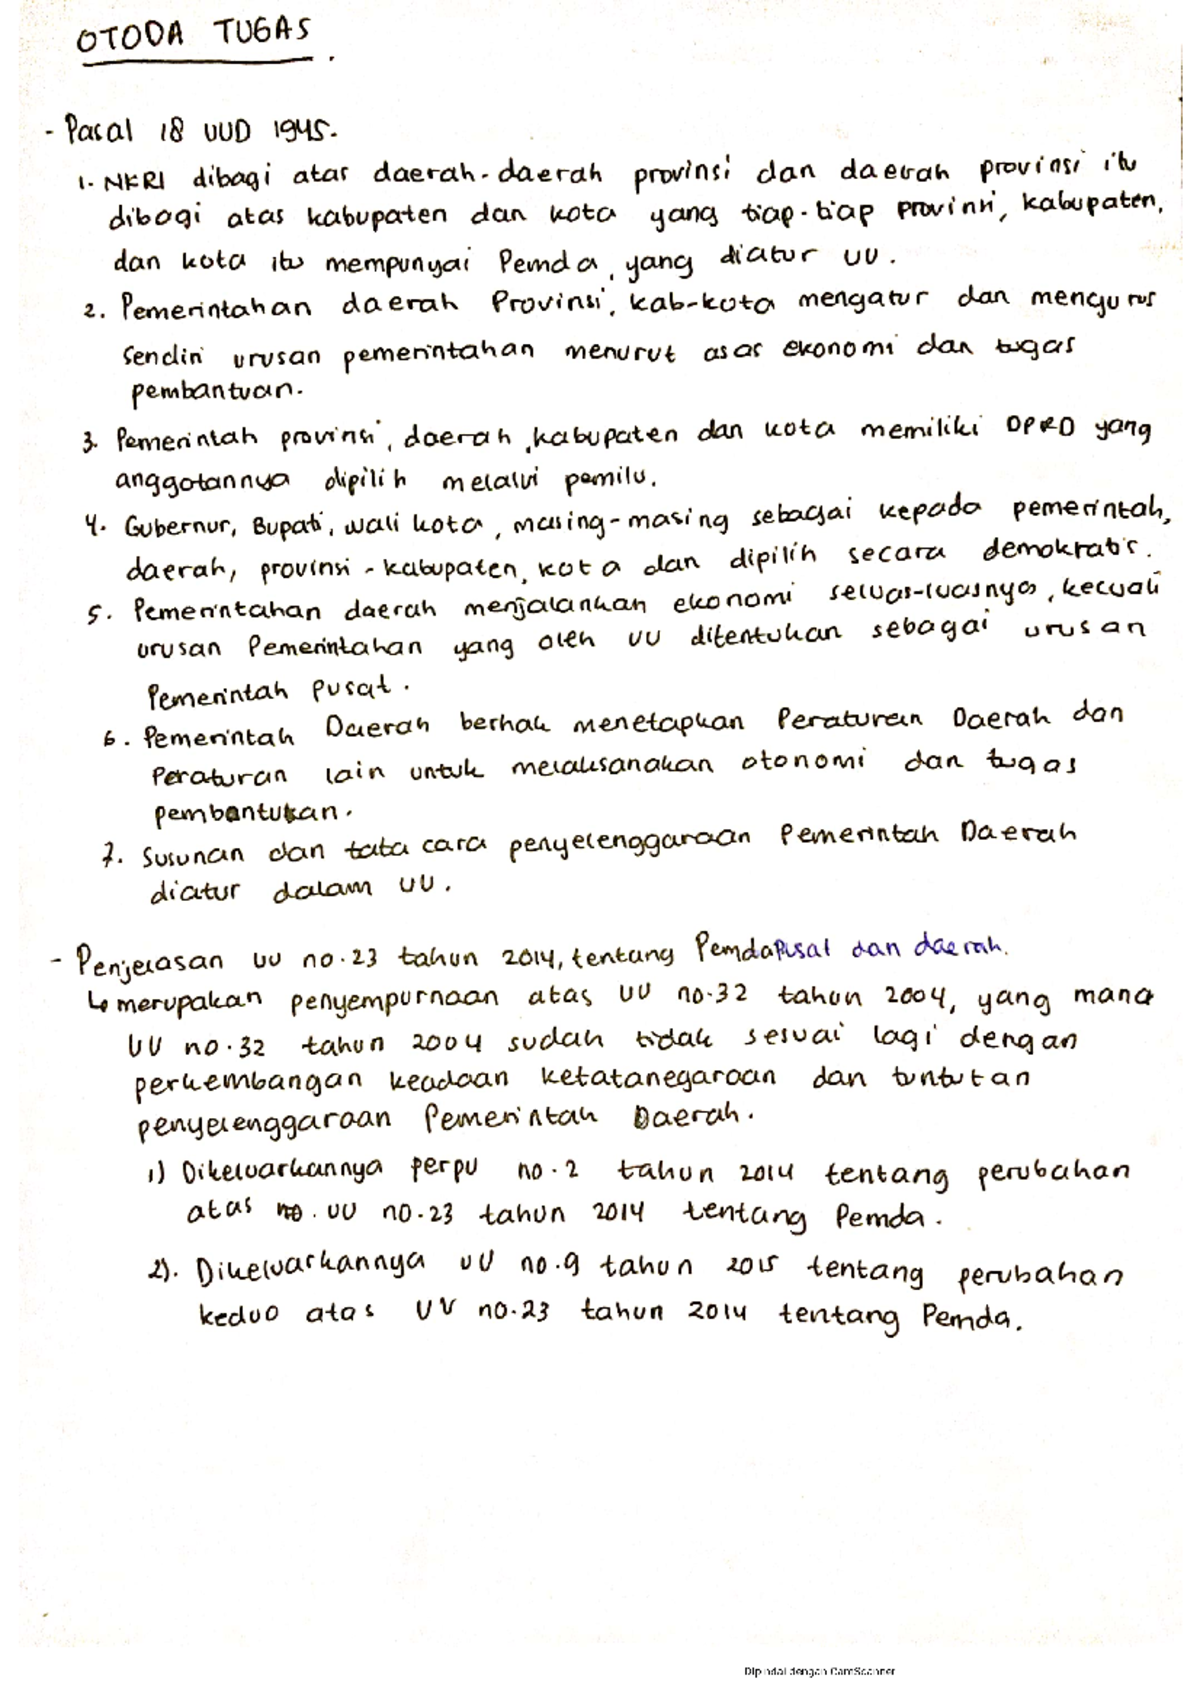 OTODA TUGAS.
- Pasal 18 UUD 1945.
1. NKRI dibagi atas daerah-daerah provinsi dan daerah provinsi itu
dibagi atas kabupaten dan kota yang tiap-tiap provinsi, kabupaten,
dan kota itu mempunyai Pemda, yang diatur UU.
2. Pemerintahan daerah Provinsi, kab-kota mengatur dan mengurus
sendiri urusan pemerintahan menurut asas ekonomi dan tugas
pembantuan.
3. Pemerintah provinsi, daerah, kabupaten dan kota memiliki DPRD yang
anggotannya dipilih melalui pemilu.
4. Gubernur, Bupati, wali kota, masing-masing sebagai kepada pemerintah,
daerah, provinsi - kabupaten, kota dan dipilih secara demokratis.
5. Pemerintahan daerah menjalankan ekonomi seluas-luasnya, kecuali
urusan Pemerintahan yang oleh UU ditentukan sebagai urusan
Pemerintah Pusat.
6. Pemerintah Daerah berhak menetapkan Peraturan Daerah dan
Peraturan lain untuk melaksanakan otonomi dan tugas
pembantukan.
7. Susunan dan tata cara penyelenggaraan Pemerintah Daerah
diatur dalam UU.
- Penjelasan UU no.23 tahun 2014, tentang Pemda Pusat dan daerah.
↳ merupakan penyempurnaan atas UU no.32 tahun 2004, yang mana
UU no.32 tahun 2004 sudah tidak sesuai lagi dengan
perkembangan keadaan ketatanegaraan dan tuntutan
penyelenggaraan Pemerintah Daerah.
1) Dikeluarkannya perpu no.2 tahun 2014 tentang perubahan
atas no. UU no.23 tahun 2014 tentang Pemda.
2). Dikeluarkannya UU no.9 tahun 2015 tentang perubahan
keduo atas UU no.23 tahun 2014 tentang Pemda.
Dipindai dengan CamScanner